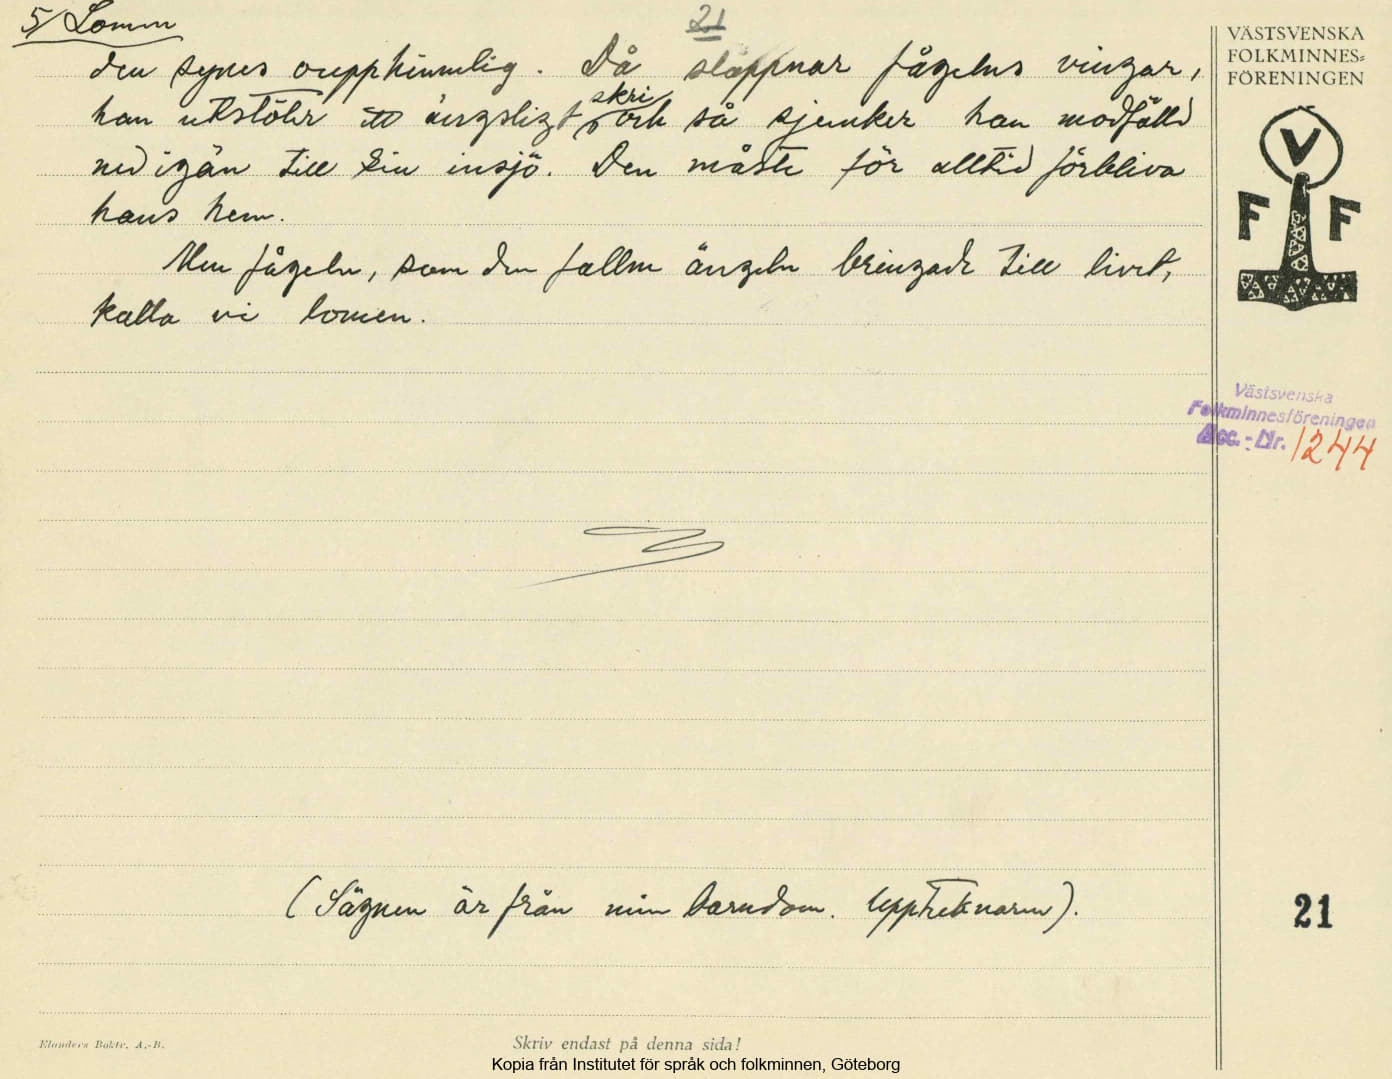 5/ Lomm
21
den synes oupphinnelig. Då slappnar fågelns vingar,
han utstöter ett ängsligt skri och så sjunker han modfälld
ned igän till sin insjö. Den måste för alltid förbliva
hans hem.
Men fågeln, som den fallne ängeln bringade till livet,
kalla vi lomen.
(Sägnen är från min barndom. Upptecknaren).
VÄSTSVENSKA
FOLKMINNES=
FÖRENINGEN
V
F F
Västsvenska
Folkminnesföreningen
Acc.-Nr. 1244
21
Elanders Boktr. A.-B.
Skriv endast på denna sida!
Kopia från Institutet för språk och folkminnen, Göteborg